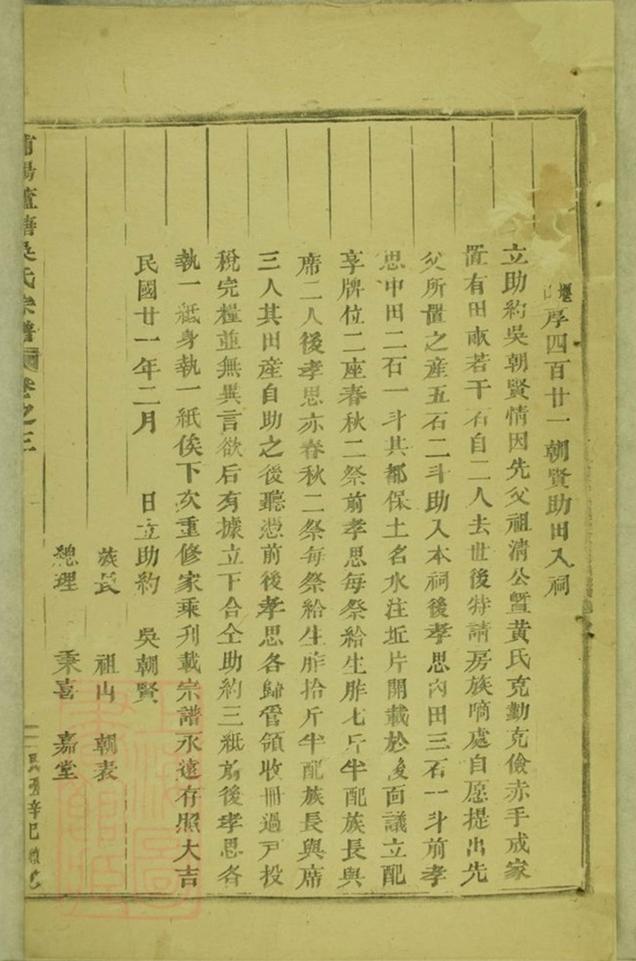 厚四百廿一朝賢助田入祠
立助約吳朝賢情因先父祖清公暨黃氏克勤克儉赤手成家
置有田畝若干石自二人去世後特請房族嘀處自愿提出先
父所置之産五石二斗助入本祠後孝思內田三石一斗前孝
思中田二石一斗其都保土名水注坵片開載於後面議立配
享牌位二座春秋二祭前孝思每祭給生胙七斤半配族長與
席二人後孝思亦春秋二祭每祭給生胙拾斤半配族長與席
三人其田産自助之後聽憑前後孝思各歸管領收冊過戸投
稅完糧並無異言欲后有據立下合仝助約三紙前後孝思各
執一紙身執一紙俟下次重修家乘刋載宗譜永遠存照大吉
民國廿一年二月 日立助約 吳朝賢
族長 祖山 朝表
總理 秉喜 嘉堂
吳氏宗譜 卷之三
辛巳